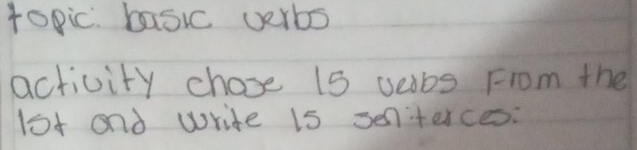 topic: basic verbs
activity chose 15 verbs From the
lst and write 15 senterces: